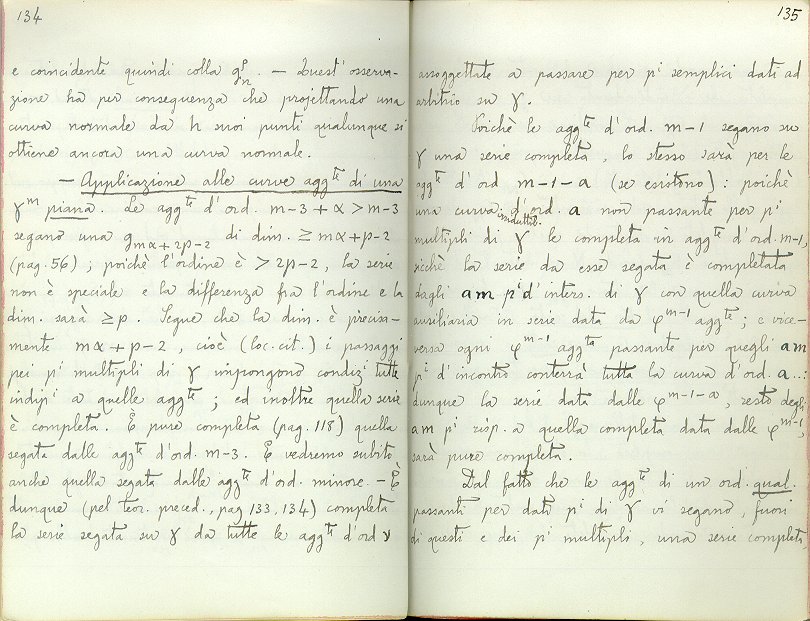 134
e coincidente quindi colla g^ρ_n. — Quest' osserva-
zione ha per conseguenza che projettando una
curva normale da h suoi punti qualunque si
ottiene ancora una curva normale.
— Applicazione alle curve agg^te di una
γ^m piana. Le agg^te d'ord. m-3+α > m-3
segano una g_{mα+2p-2} di dim. ≥ mα+p-2
(pag. 56) ; poichè l'ordine è > 2p-2, la serie
non è speciale e la differenza fra l'ordine e la
dim. sarà ≥ p. Segue che la dim. è precisa-
mente mα+p-2, cioè (loc. cit.) i passaggi
pei p^i multipli di γ impongono condiz^i tutte
indip^i a quelle agg^te ; ed inoltre quella serie
è completa. È pure completa (pag. 118) quella
segata dalle agg^te d'ord. m-3. E vedremo subito
anche quella segata dalle agg^te d'ord. minore. — È
dunque (pel teor. preced., pag 133, 134) completa
la serie segata su γ da tutte le agg^te d'ord ν
135
assoggettate a passare per p^i semplici dati ad
arbitrio su γ.
Poichè le agg^te d'ord. m-1 segano su
γ una serie completa, lo stesso sarà per le
agg^te d'ord m-1-a (se esistono) : poichè
una curva irriduttib. d'ord. a non passante per p^i
multipli di γ le completa in agg^te d'ord. m-1,
sicchè la serie da esse segata è completata
dagli am p^i d'inters. di γ con quella curva
ausiliaria in serie data da φ^{m-1} agg^te ; e vice-
versa ogni φ^{m-1} agg^ta passante per quegli am
p^i d'incontro conterrà tutta la curva d'ord. a...:
dunque la serie data dalle φ^{m-1-a}, resto degli
am p^i risp. a quella completa data dalle φ^{m-1},
sarà pure completa.
Dal fatto che le agg^te di un ord. qual.
passanti per dati p^i di γ vi segano, fuori
di questi e dei p^i multipli, una serie completa,